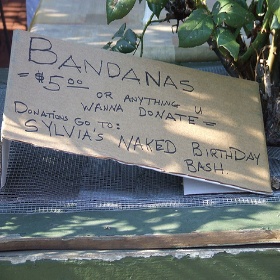 BANDANAS
- $5.00 OR ANYTHING U
WANNA DONATE -
DONATIONS GO TO:
SYLVIA'S NAKED BIRTHDAY
BASH.